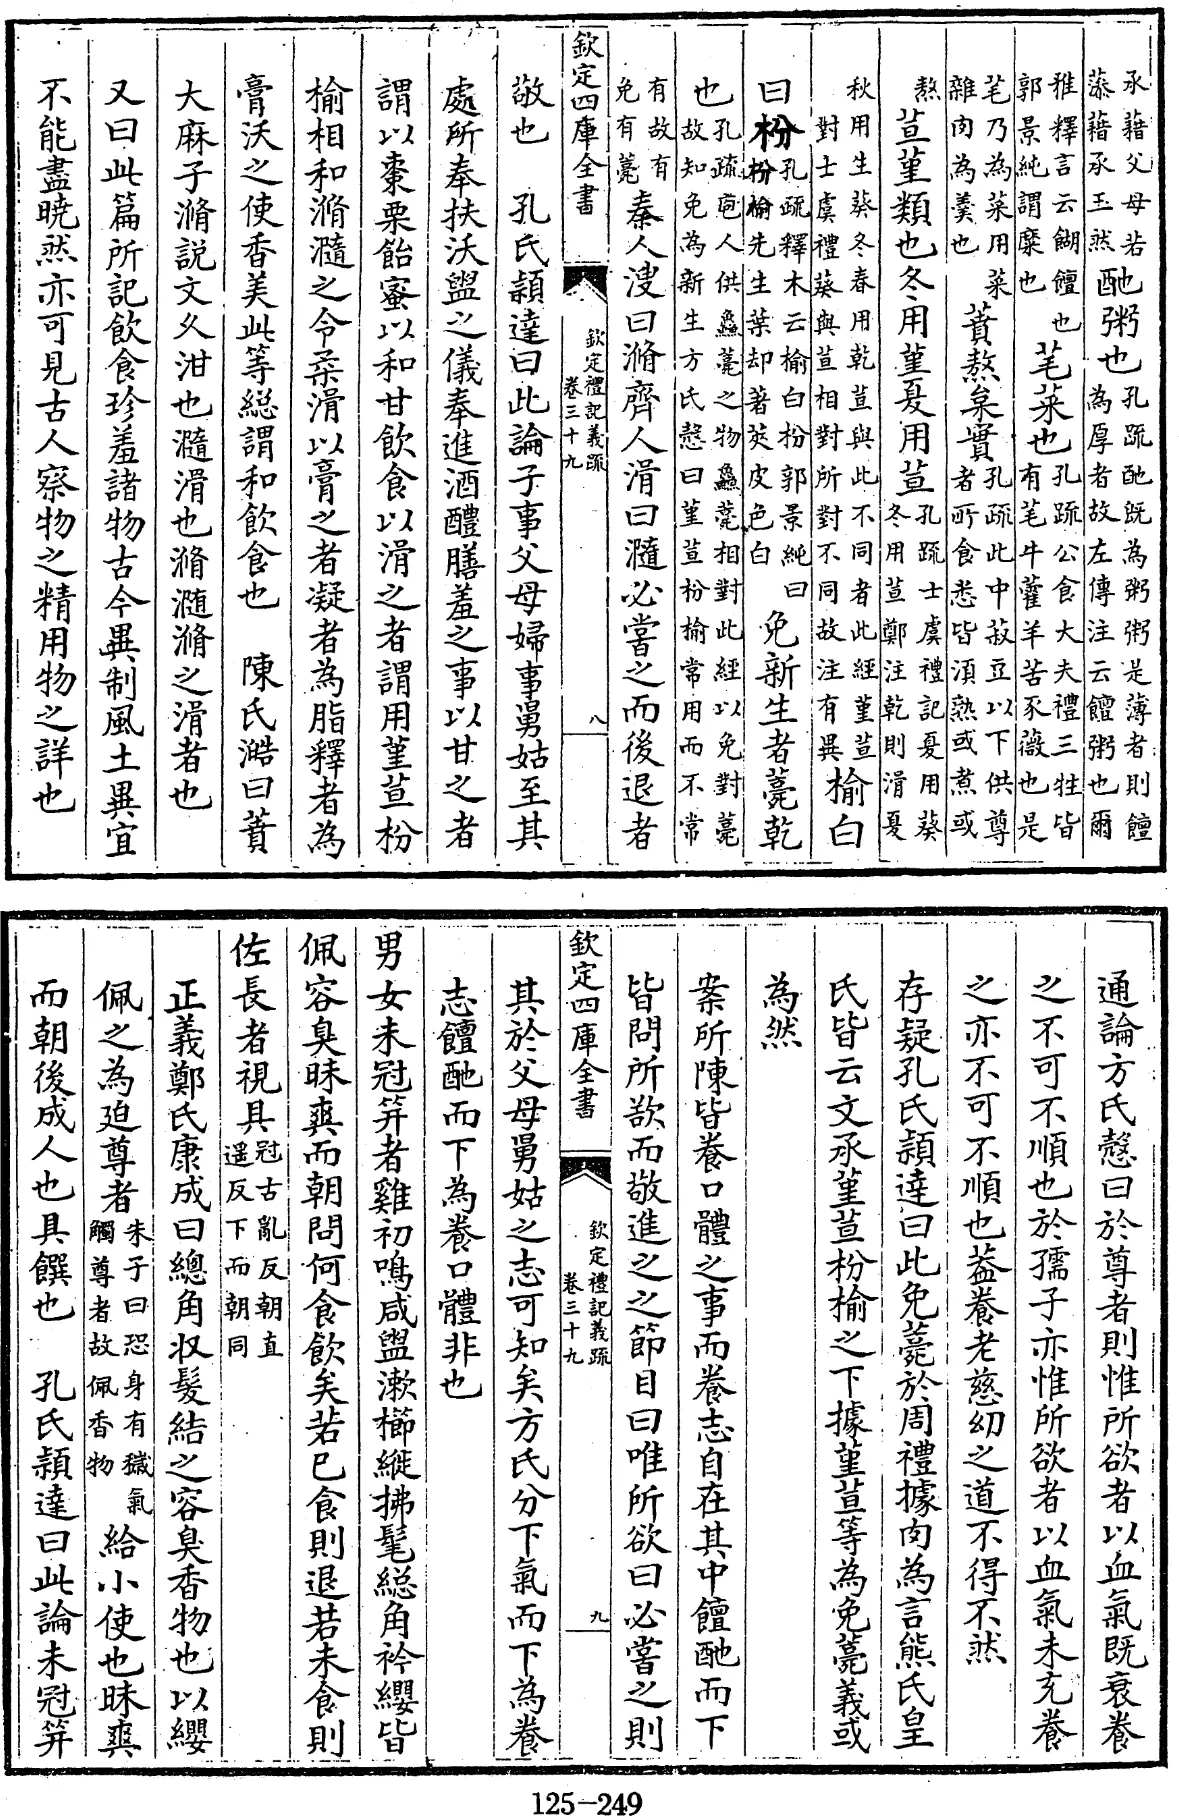 承藉父母若藻藉承玉然酏粥也孔疏酏既為粥粥是薄者則饘為厚者故左傳注云饘粥也爾
雅釋言云餬饘也郭景純謂糜也芼菜也孔疏公食大夫禮三牲皆有芼牛藿羊苦豕薇也是
芼乃為菜用菜雜肉為羮也蕡熬枲實孔疏此中菽豆以下供尊者所食悉皆湏熟或煮或
熬荁堇類也冬用堇夏用荁孔疏士虞禮記夏用葵冬用荁鄭注乾則滑夏
秋用生葵冬春用乾荁與此不同者此經堇荁對士虞禮葵與荁相對所對不同故注有異榆白
曰枌孔疏釋木云榆白枌郭景純曰枌榆先生葉却著莢皮色白免新生者薧乾
也孔疏庖人供鱻薧之物鱻薧相對此經以免對薧故知免為新生方氏慤曰堇荁枌榆常用而不常
有故有免有薧秦人溲曰滫齊人滑曰瀡必嘗之而後退者
欽定四庫全書 欽定禮記義疏 卷三十九 八
敬也 孔氏穎達曰此論子事父母婦事舅姑至其
處所奉扶沃盥之儀奉進酒醴膳羞之事以甘之者
謂以棗栗飴蜜以和甘飲食以滑之者謂用堇荁枌
榆相和滫瀡之令柔滑以膏之者凝者為脂釋者為
膏沃之使香美此等總謂和飲食也 陳氏澔曰蕡
大麻子滫說文久泔也瀡滑也滫瀡滫之滑者也
又曰此篇所記飲食珍羞諸物古今異制風土異宜
不能盡曉然亦可見古人察物之精用物之詳也
通論方氏慤曰於尊者則惟所欲者以血氣既衰養
之不可不順也於孺子亦惟所欲者以血氣未充養
之亦不可不順也葢養老慈幼之道不得不然
存疑孔氏穎達曰此免薧於周禮據肉為言熊氏皇
氏皆云文承堇荁枌榆之下據堇荁等為免薧義或
為然
案所陳皆養口體之事而養志自在其中饘酏而下
皆問所欲而敬進之之節目曰唯所欲曰必嘗之則
欽定四庫全書 欽定禮記義疏 卷三十九 九
其於父母舅姑之志可知矣方氏分下氣而下為養
志饘酏而下為養口體非也
男女未冠笄者雞初鳴咸盥漱櫛縰拂髦總角衿纓皆
佩容臭昧爽而朝問何食飲矣若已食則退若未食則
佐長者視具冠古亂反朝直遥反下而朝同
正義鄭氏康成曰總角收髮結之容臭香物也以纓
佩之為迫尊者朱子曰恐身有穢氣觸尊者故佩香物給小使也昧爽
而朝後成人也具饌也 孔氏穎達曰此論未冠笄
125-249